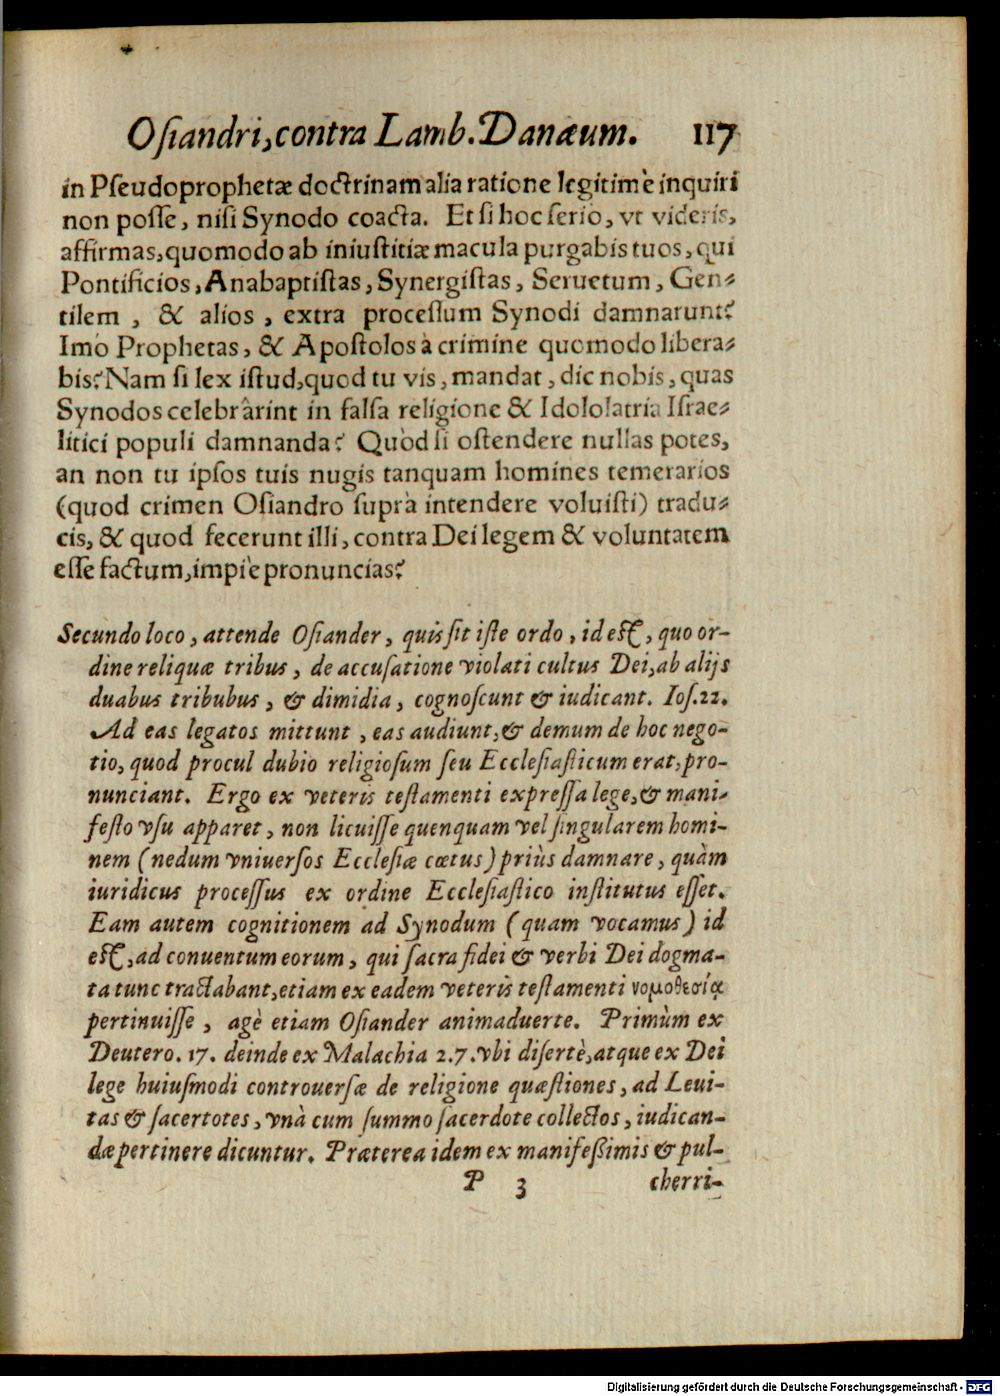 Oſiandri, contra Lamb. Danæum. 117
in Pſeudoprophetæ doctrinam alia ratione legitimè inquiri
non poſſe, niſi Synodo coacta. Et ſi hoc ſerio, vt videris,
affirmas, quomodo ab iniuſtitiæ macula purgabis tuos, qui
Pontificios, Anabaptiſtas, Synergiſtas, Seruetum, Gen⸗
tilem, & alios, extra proceſſum Synodi damnarunt?
Imo Prophetas, & Apoſtolos à crimine quomodo libera⸗
bis? Nam ſi lex iſtud, quod tu vis, mandat, dic nobis, quas
Synodos celebrârint in falſa religione & Idololatria Iſrae⸗
litici populi damnanda? Quòd ſi oſtendere nullas potes,
an non tu ipſos tuis nugis tanquam homines temerarios
(quod crimen Oſiandro ſuprà intendere voluiſti) tradu⸗
cis, & quod fecerunt illi, contra Dei legem & voluntatem
eſſe factum, impiè pronuncias?
Secundo loco, attende Oſiander, quis ſit iſte ordo, id eſt, quo or-
dine reliquæ tribus, de accuſatione violati cultus Dei, ab alijs
duabus tribubus, & dimidia, cognoſcunt & iudicant. Ioſ. 22.
Ad eas legatos mittunt, eas audiunt, & demum de hoc nego-
tio, quod procul dubio religioſum ſeu Eccleſiaſticum erat, pro-
nunciant. Ergo ex veteris teſtamenti expreſſa lege, & mani-
feſto vſu apparet, non licuiſſe quenquam vel ſingularem homi-
nem (nedum vniuerſos Eccleſiæ cœtus) priùs damnare, quàm
iuridicus proceſſus ex ordine Eccleſiaſtico inſtitutus eſſet.
Eam autem cognitionem ad Synodum (quam vocamus) id
eſt, ad conuentum eorum, qui ſacra fidei & verbi Dei dogma-
ta tunc tractabant, etiam ex eadem veteris teſtamenti νομοθεσίᾳ
pertinuiſſe, agè etiam Oſiander animaduerte. Primùm ex
Deutero. 17. deinde ex Malachia 2.7. vbi diſertè, atque ex Dei
lege huiuſmodi controuerſæ de religione quæſtiones, ad Leui-
tas & ſacertotes, vnà cum ſummo ſacerdote collectos, iudican-
dæ pertinere dicuntur. Præterea idem ex manifeßimis & pul-
P 3 cherri-
Digitalisierung gefördert durch die Deutsche Forschungsgemeinschaft - DFG